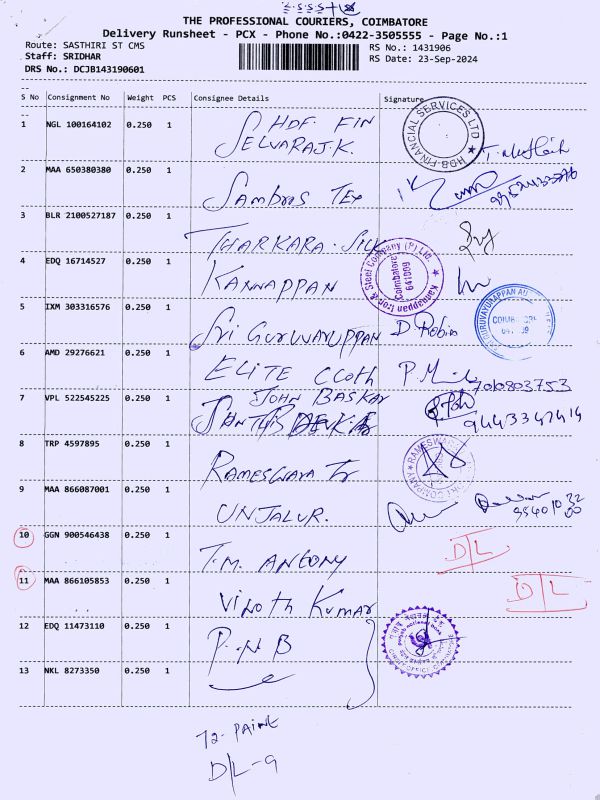 THE PROFESSIONAL COURIERS, COIMBATORE
Delivery Runsheet - PCX - Phone No.:0422-3505555 - Page No.:1
Route: SASTHIRI ST CMS
RS No.: 1431906
Staff: SRIDHAR
RS Date: 23-Sep-2024
DRS No.: DCJB143190601
S No Consignment No Weight PCS Consignee Details Signature
1 NGL 100164102 0.250 1 HDF. FIN
SELVARAJ.K.
HDB FINANCIAL SERVICES LTD
2 MAA 650380380 0.250 1 Sambros Tex
3 BLR 2100527187 0.250 1 THARKARA. SILK
4 EDQ 16714527 0.250 1 KANNAPPAN
Kannappan Iron & Steel Company (P) Ltd.
Coimbatore
641009
5 IXM 303316576 0.250 1 Sri GURUVAYUPPAN D. Robin
6 AMD 29276621 0.250 1 ELITE Cloth
7010803753
7 VPL 522545225 0.250 1 JOHN BASKAR
9443342414
8 TRP 4597895 0.250 1 RAMESWARA Tr
9 MAA 866087001 0.250 1 UNJALUR.
10 GGN 900546438 0.250 1 T.M. ANTONY D/L
11 MAA 866105853 0.250 1 Vinoth Kumar D/L
12 EDQ 11473110 0.250 1 P.N B
punjab national bank
13 NKL 8273350 0.250 1
D/L-9